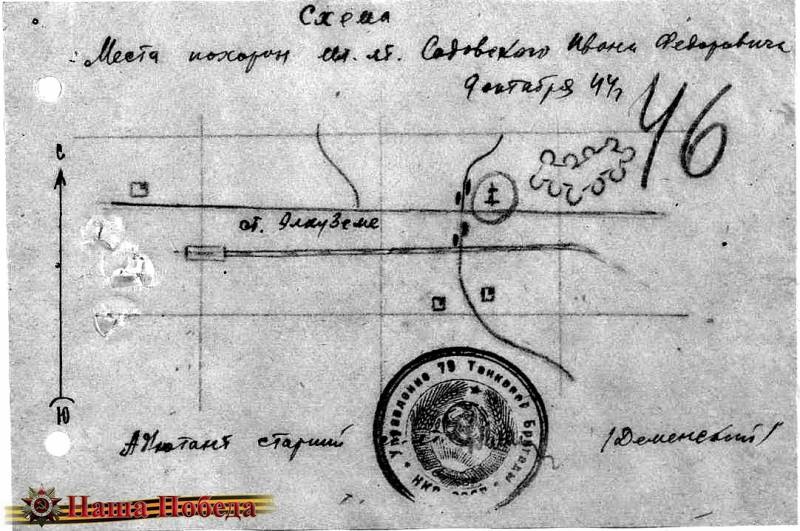 Схема
Места похорон мл. лт. Садовского Ивана Федоровича
9 октября 44 г
46
С
ст. Элкуземе
Ю
Управление 79 Танковой Бригады
НКО СССР
Адютант старший /Деменский/
Наша Победа